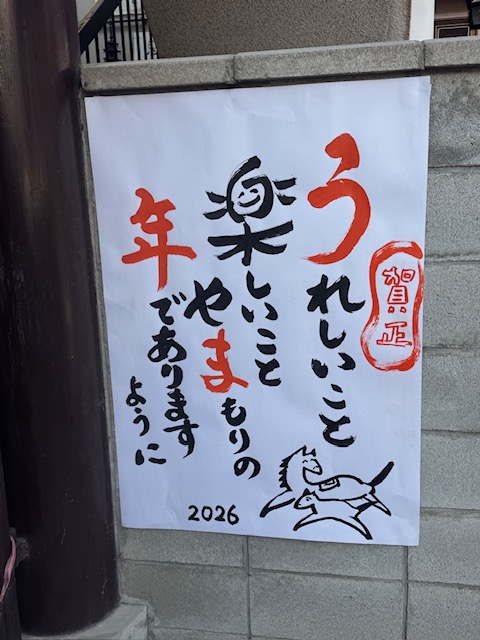 賀正
うれしいこと
楽しいこと
やまもりの
年であります
ように
2026